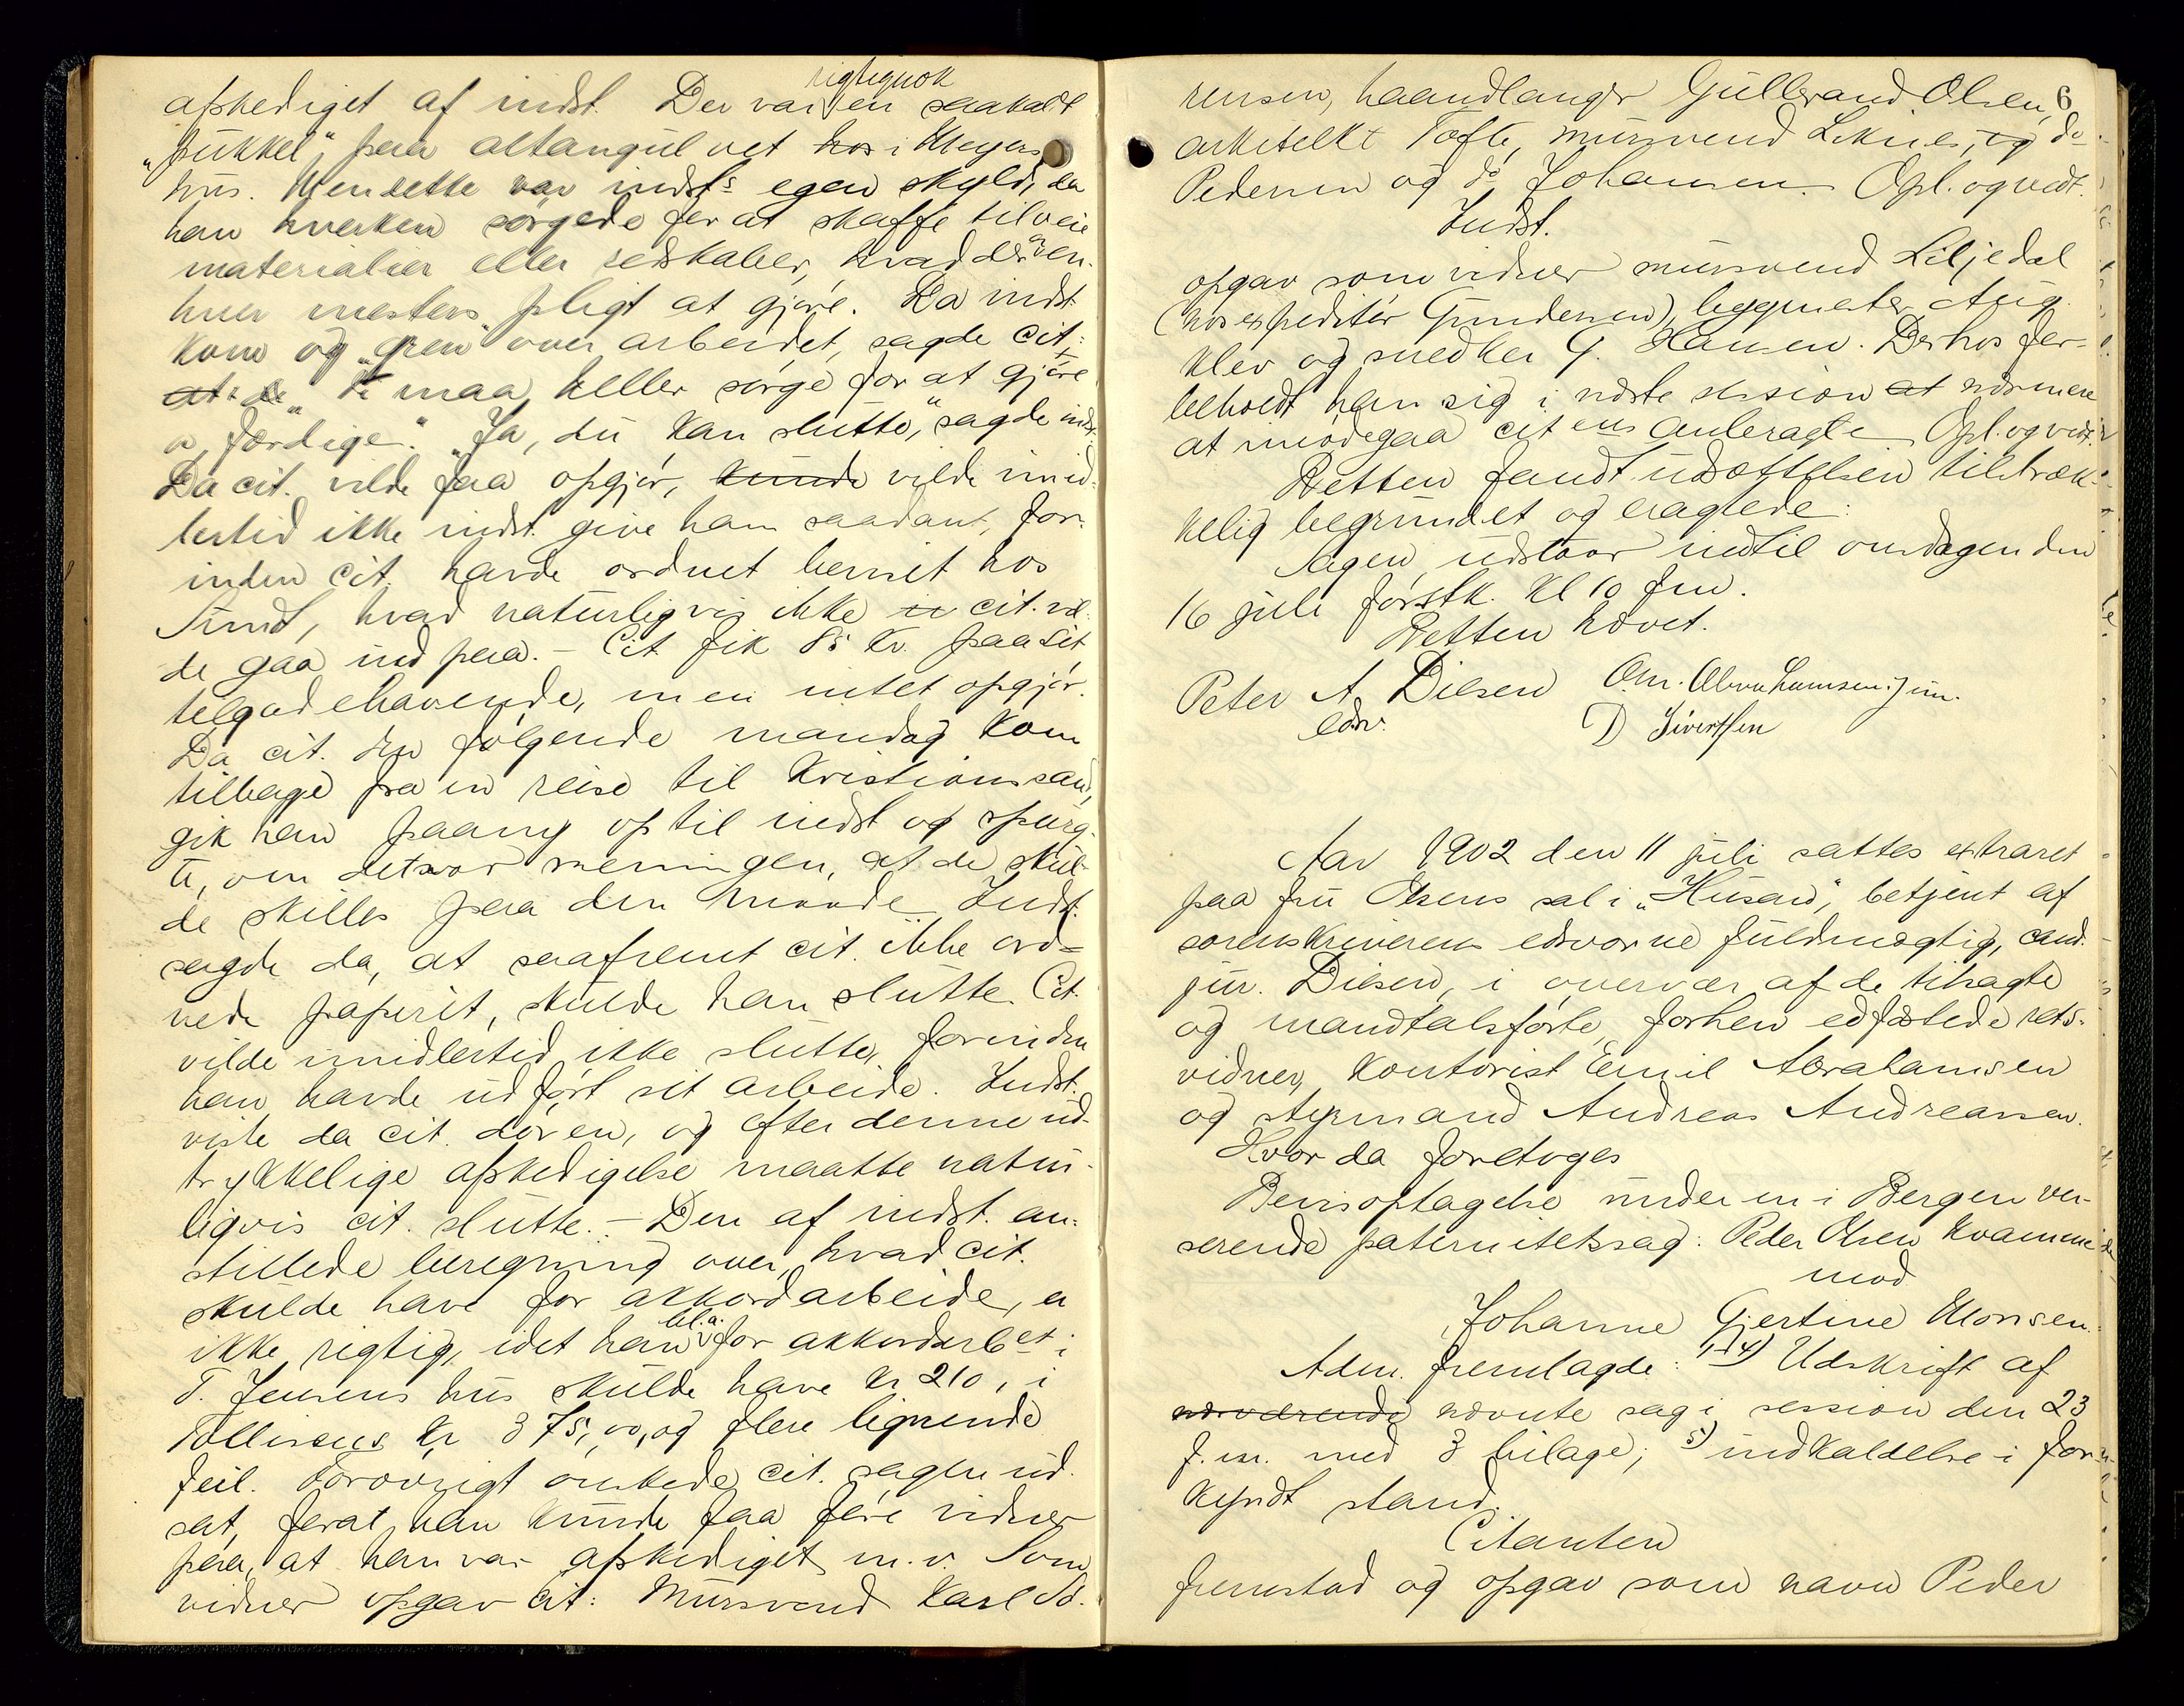 afskediget af indst. Der var rigtignok en saakaldt
"pukkel" paa altangulvet hos i Meyers
hus. Men dette var indst.s egen skyld, da
han hverken sørgede for at skaffe tilveie
materialier eller redskaber, hvad der er en-
hver mesters pligt at gjøre. Da indst.
kom og "gren" over arbeidet, sagde cit.:
at de "Vi maa heller sørge for at gjøre
os færdige." "Ja, du kan slutte," sagde indst.
Da cit. vilde faa opgjør, kunde vilde imid-
lertid ikke indst. give ham saadant, for-
inden cit. havde ordnet beviset hos
Sund, hvad naturligvis ikke cit. vil-
de gaa ind paa. - Cit. fik 85 kr. paa sit
tilgodehavende, men intet opgjør.
Da cit. den følgende mandag kom
tilbage fra en reise til Kristianssand,
gik han paany op til indst. og spurg-
te, om det var meningen, at de skul-
de skilles paa den maade. Indst.
sagde da, at saafremt cit. ikke ord-
nede papiret, skulde han slutte. Cit.
vilde imidlertid ikke slutte, forinden
han havde udført sit arbeide. Indst.
viste da cit. døren, og efter denne ud-
trykkelige afskedigelse maatte natur-
ligvis cit. slutte. - Den af indst. an-
stillede beregning over, hvad cit.
skulde have for akkordarbeide, er
ikke rigtig, idet han bl.a. for akkordarbet i
T. Jensens hus skulde have kr 210, i
Tollisens kr 375,00, og flere lignende
feil. Forøvrigt ønskede cit. sagen ud-
sat, forat han kunde faa føre vidner
paa, at han var afskediget m.v. Som
vidner opgav cit: Mursvend Karl Sø-
rensen, haandlanger Gulbrand Olsen, 6
arkitekt Tofte, mursvend Leknes, og do
Pedersen og do Johansen. Opl. og vedt.
Indst.
opgav som vidner mursvend Liljedal
(hos expeditør Gundersen), bygmester Aug.
Klev og snedker G. Hansen. Derhos for-
beholdt han sig i næste session at nærmere
at imødegaa citens anbragte. Opl. og vedt.
Retten fandt udsættelsen tilstræk-
kelig begrundet og eragtede:
Sagen udstaar indtil onsdagen den
16 juli førstk. kl 10 fm.
Retten hævet.
Peter A. Diesen Em. Abrahamsen jun.
edsv. D Sivertsen
Aar 1902 den 11 juli sattes extraret
paa fru Olsens sal i "Husan", betjent af
sorenskriverens edsvorne fuldmægtig, cand.
jur. Diesen, i overvær af de tilsagte
og mandtalsførte, forhen edfæstede rets-
vidner, kontorist Emil Abrahamsen
og styrmand Andreas Andreassen.
Hvor da foretoges
Bevisoptagelse under en i Bergen ver-
serende paternitetssag: Peder Olsen Kvamme
mod
Johanne Gjertine Monsen.
Adm. fremlagde: 1-4) Udskrift af
nærværende nævnte sag i session den 23
f.m. med 3 bilage; 5) indkaldelse i for-
kyndt stand.
Citanten
fremstod og opgav som navn Peder